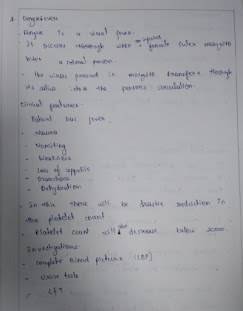 Dengue fever
- Dengue is a viral fever.
- It occurs through when an infected female culex mosquito
bites a normal person.
- The virus present in mosquito transfers through
its saliva into the persons circulation.
Clinical features -
- Patient has fever
- Nausea
- Vomiting
- Weakness
- Loss of appetite
- Diarrhoea
- Dehydration
- In this there will be drastic reduction in
the platelet count.
- Platelet count will decrease below 20,000.
Investigations -
- Complete Blood picture (CBP)
- Urine tests
- LFT.